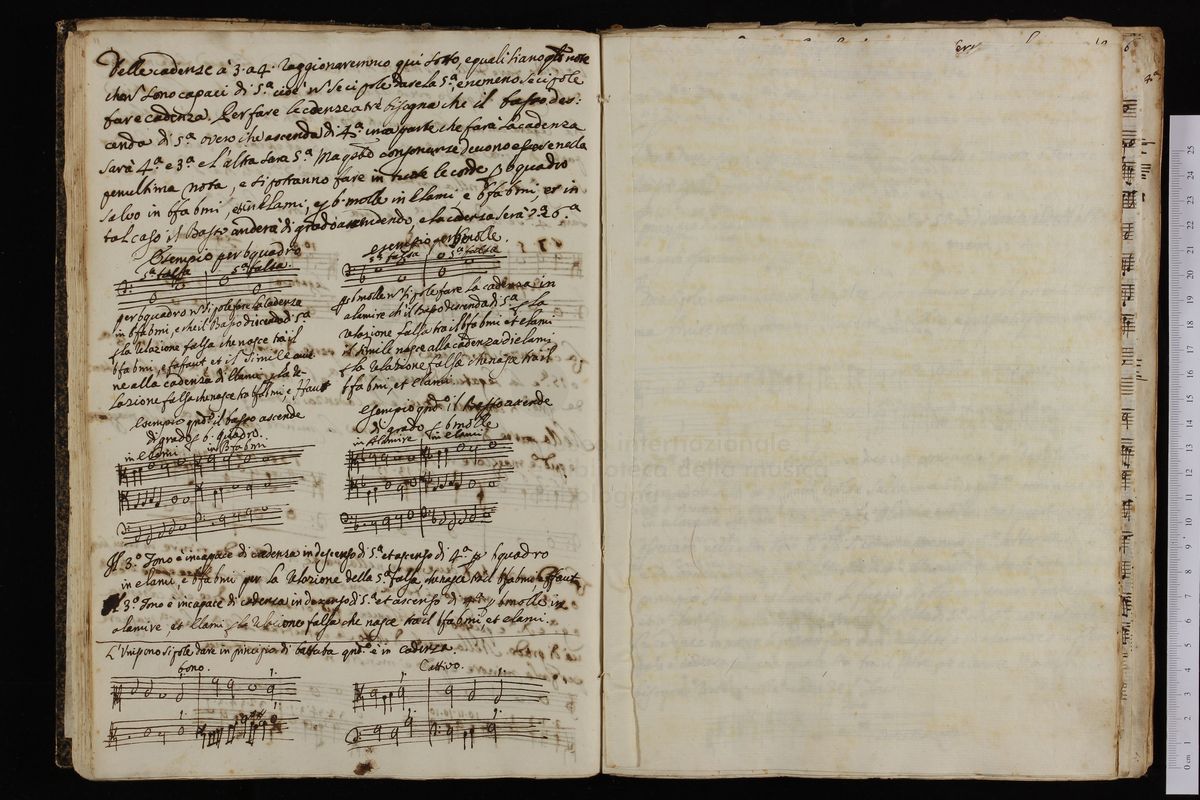 Delle cadenze à 3. a 4. raggionaremmo qui sotto, e quali siano
sono capaci di 5.ª cioè si pole dare la 5.ª, e ne meno se ci pole
fare cadenza. Per fare le cadenze a tre bisogna che il basso des:
cenda di 5.ª overo che ascenda di 4.ª una parte che farà la cadenza
sarà 4.ª e 3.ª e l'altra sarà 5.ª Ma consonanze devono essere nella
penultima nota, e si potranno fare in tutte le corde p bquadro
salvo in bfabmi, et in elami, e p b. molle in elami e bfabmi, et in
tal caso il Basso anderà di grado ascendendo e la cadenza serà 7.ª e 6.ª
Esempio per bquadro
5.ª falsa 5.ª falsa.
per bquadro si pole fare la cadenza
in bfabmi, e che il Basso discenda di 5.ª
p la relazione falsa che nasce tra il
bfabmi, e fafaut et il simile
ne alla cadenza di Elami p la re
lazione falsa che nasce tra bfabmi, e ffaut
esempio per bmolle.
5.ª falsa 5.ª falsa
per bmolle si pole fare la cadenza in
alamire che il Basso discenda di 5.ª p la
relazione falsa tra il bfabmi et elami
il simile nasce alla cadenza di elami
p la relazione falsa che nasce tra il
bfabmi, et elami
Esempio qndo il basso ascende
di grado p b. quadro.
in elami in bfabmi
Esempio qndo il Basso ascende
di grado p bmolle
in Alamire in elami
Il 3.º Tono è incapace di cadenza in descenso di 5.ª et ascenso di 4.ª p bquadro
in elami, e bfabmi per la relazione della 5.ª falsa che nasce tra il bfabmi e ffaut
Il 3.º Tono è incapace di cadenza in descenso di 5.ª et ascenso di 4.ª p bmolle in
alamire et Elami p la relazione falsa che nasce tra il bfabmi et elami.
L'Unisono si pole dare in principio di battuta qndo è in cadenza
bono. Cattivo.
museo internazionale
e biblioteca della musica
di bologna